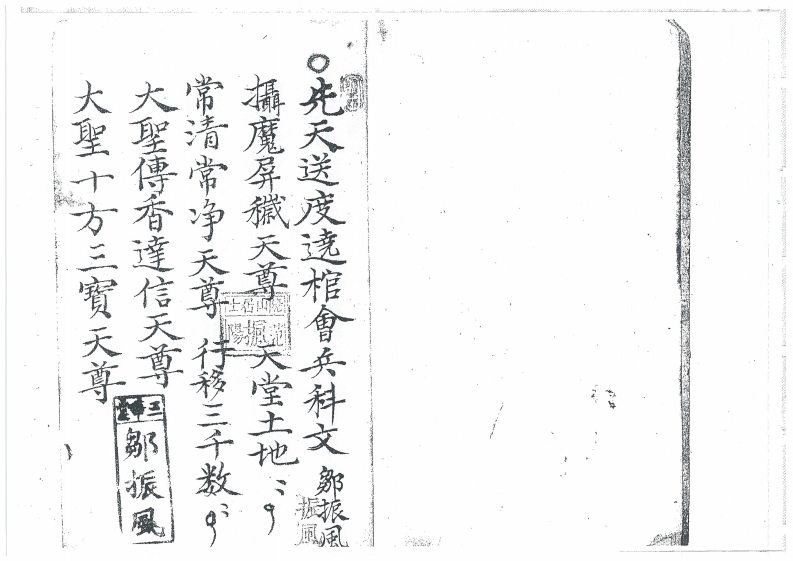 先天送度遶棺會兵科文
鄒振風
振風
攝魔屏穢天尊 天堂土地〻
常清常净天尊 行移三千数〻
大聖傳香達信天尊
大聖十方三寶天尊
鄒振風